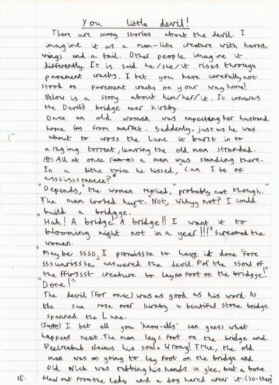 You little devil!
There are many stories about the devil. I
imagine it as a man-like creature with horns,
wings and a tail. Other people imagine it
differently. It is said he/she/it rises through
pavement cracks. I bet you have carefully not
stood on pavement cracks on your way home!
Below is a story about him/her/it. It concerns
the Devil's bridge near Kirkby.
Once an old woman was expecting her husband
home from market. Suddenly, just as he was
about to cross the Lune it burst into
a raging torrent, leaving the old man stranded.
All at once a man was standing there.
In a he hissed, Can I be of
"Depends, the woman replied," probably not though.
The man looked hurt. Not, Why not? I could
build a bridge.
"Hah! A bridge! A bridge!! I want it to
blooming night not in a year!!!" screamed the
woman.
Maybe I to have it done
answered the devil. For the soul of
the to lay foot on the bridge."
"Done!"
The devil (for once) was as good as his word. As
the sun rose over a beautiful stone bridge
spanned the Lune.
I bet all you can guess what
happens next. The man lays foot on the bridge and
his soul? Wrong! True, the old
man was going to lay foot on the bridge and
Old Nick was rubbing his hands in glee, but a bone
flew out from the lady and a dog